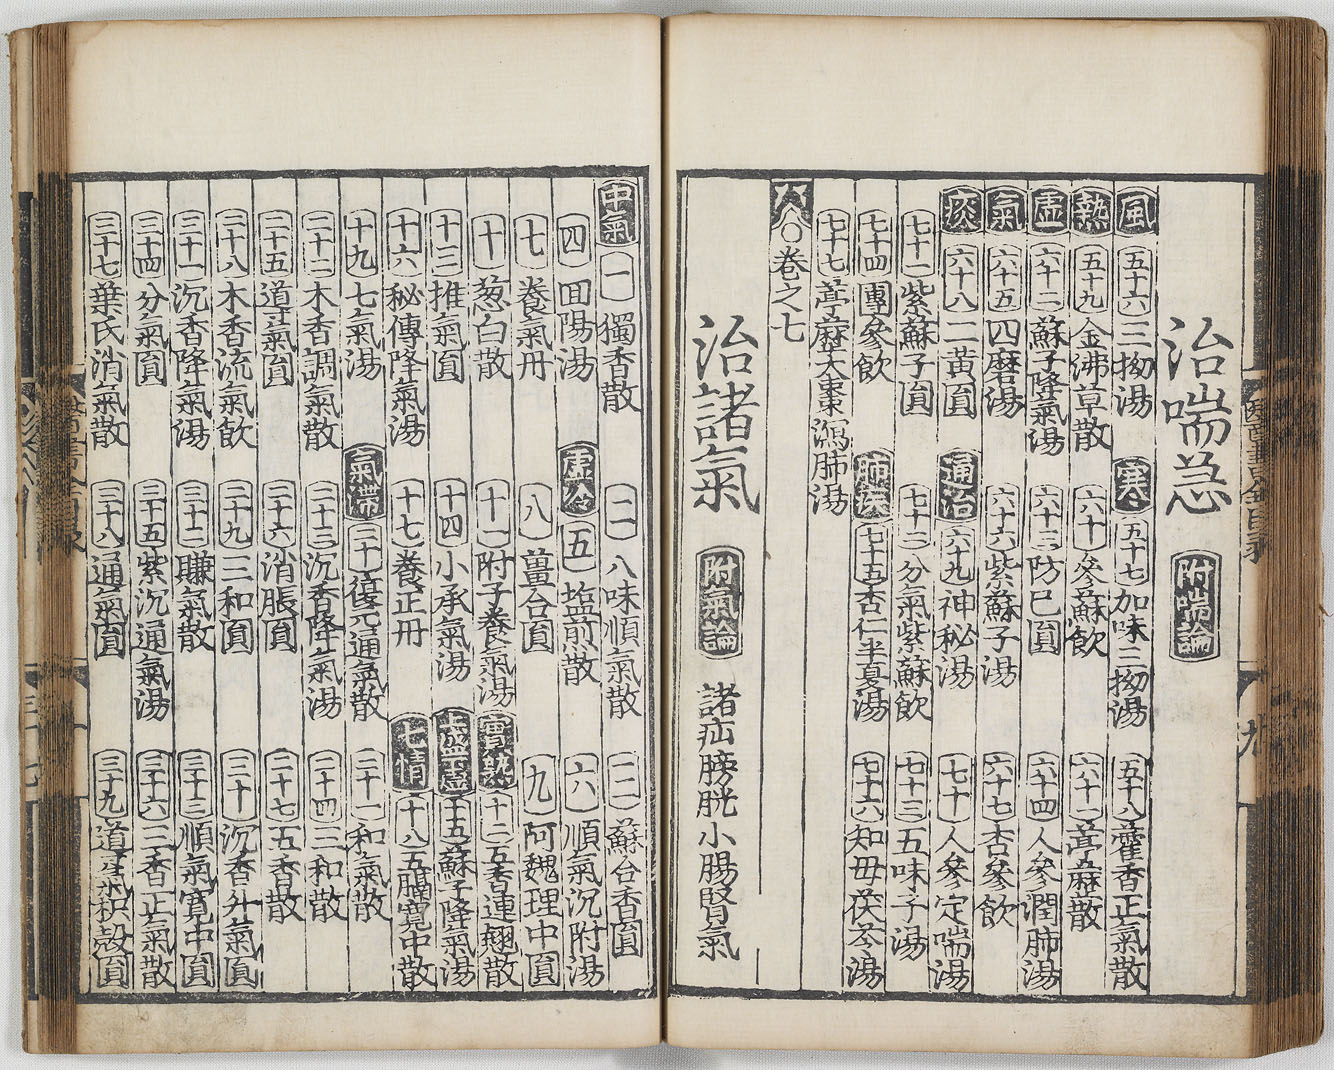 治喘急 附喘論
風 五十六 三拗湯 寒 五十七 加味三拗湯 五十八 藿香正氣散
熱 五十九 金沸草散 六十 參蘇飲 六十一 葶藶散
虛 六十二 蘇子降氣湯 六十三 防己圓 六十四 人參潤肺湯
氣 六十五 四磨湯 六十六 紫蘇子湯 六十七 杏參飲
痰 六十八 二黃圓 通治 六十九 神秘湯 七十 人參定喘湯
七十一 紫蘇子圓 七十二 分氣紫蘇飲 七十三 五味子湯
七十四 團參飲 肺疾 七十五 杏仁半夏湯 七十六 知母茯苓湯
七十七 葶藶大棗瀉肺湯
○卷之七
治諸氣 附氣論 諸疝膀胱小腸腎氣
中氣 一 獨香散 二 八味順氣散 三 蘇合香圓
四 回陽湯 虛冷 五 塩煎散 六 順氣沉附湯
七 養氣丹 八 薑合圓 九 阿魏理中圓
十 葱白散 十一 附子養氣湯 實熱 十二 五香連翹散
十三 推氣圓 十四 小承氣湯 上盛下虛 十五 蘇子降氣湯
十六 秘傳降氣湯 十七 養正丹 七情 十八 五膈寬中散
十九 七氣湯 氣滯 二十 復元通氣散 二十一 和氣散
二十二 木香調氣散 二十三 沉香降氣湯 二十四 三和散
二十五 導氣圓 二十六 消脹圓 二十七 五香散
二十八 木香流氣飲 二十九 三和圓 三十 沉香升氣圓
三十一 沉香降氣湯 三十二 賺氣散 三十三 順氣寬中圓
三十四 分氣圓 三十五 紫沉通氣湯 三十六 三香正氣散
三十七 葉氏消氣散 三十八 通氣圓 三十九 導氣枳殼圓